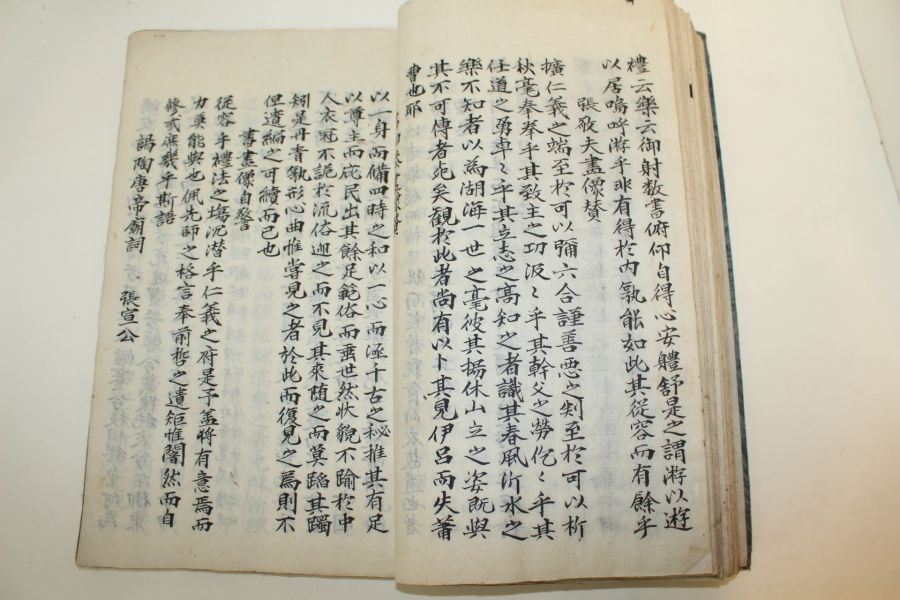 禮云樂云御射数書俯仰自得心安軆舒是之謂游以遊
以居嗚呼游乎非有得於内孰能如此其從容而有餘乎
張敬夫畫像賛
擴仁義之端至於可以彌六合謹善悪之判至於可以析
秋毫奉奉乎其致主之功汲〻乎其幹父之勞仡〻乎其
任道之勇卓〻乎其立志之高知之者識其春風沂水之
樂不知者以為湖海一世之豪彼其揚休山立之姿既與
其不可傳者死矣觀於此者尚有以卜其見伊呂而失蕭
曹也耶
以一身而備四時之和以一心而涵千古之秘推其有足
以尊主而庇民出其餘足範俗而垂世然状貌不踰於中
人衣冠不詭於流俗迎之而不見其來随之而莫蹈其躅
矧是丹青孰形心曲惟嘗見之者於此而復見之焉則不
但遺編之可續而已也
書畫像自警
從容乎禮法之塲沉潜乎仁義之府是予盖將有意焉而
力莫能與也佩先師之格言奉前哲之遺矩惟闇然而自
修或庶幾乎斯語
謁陶唐帝廟詞 張宣公